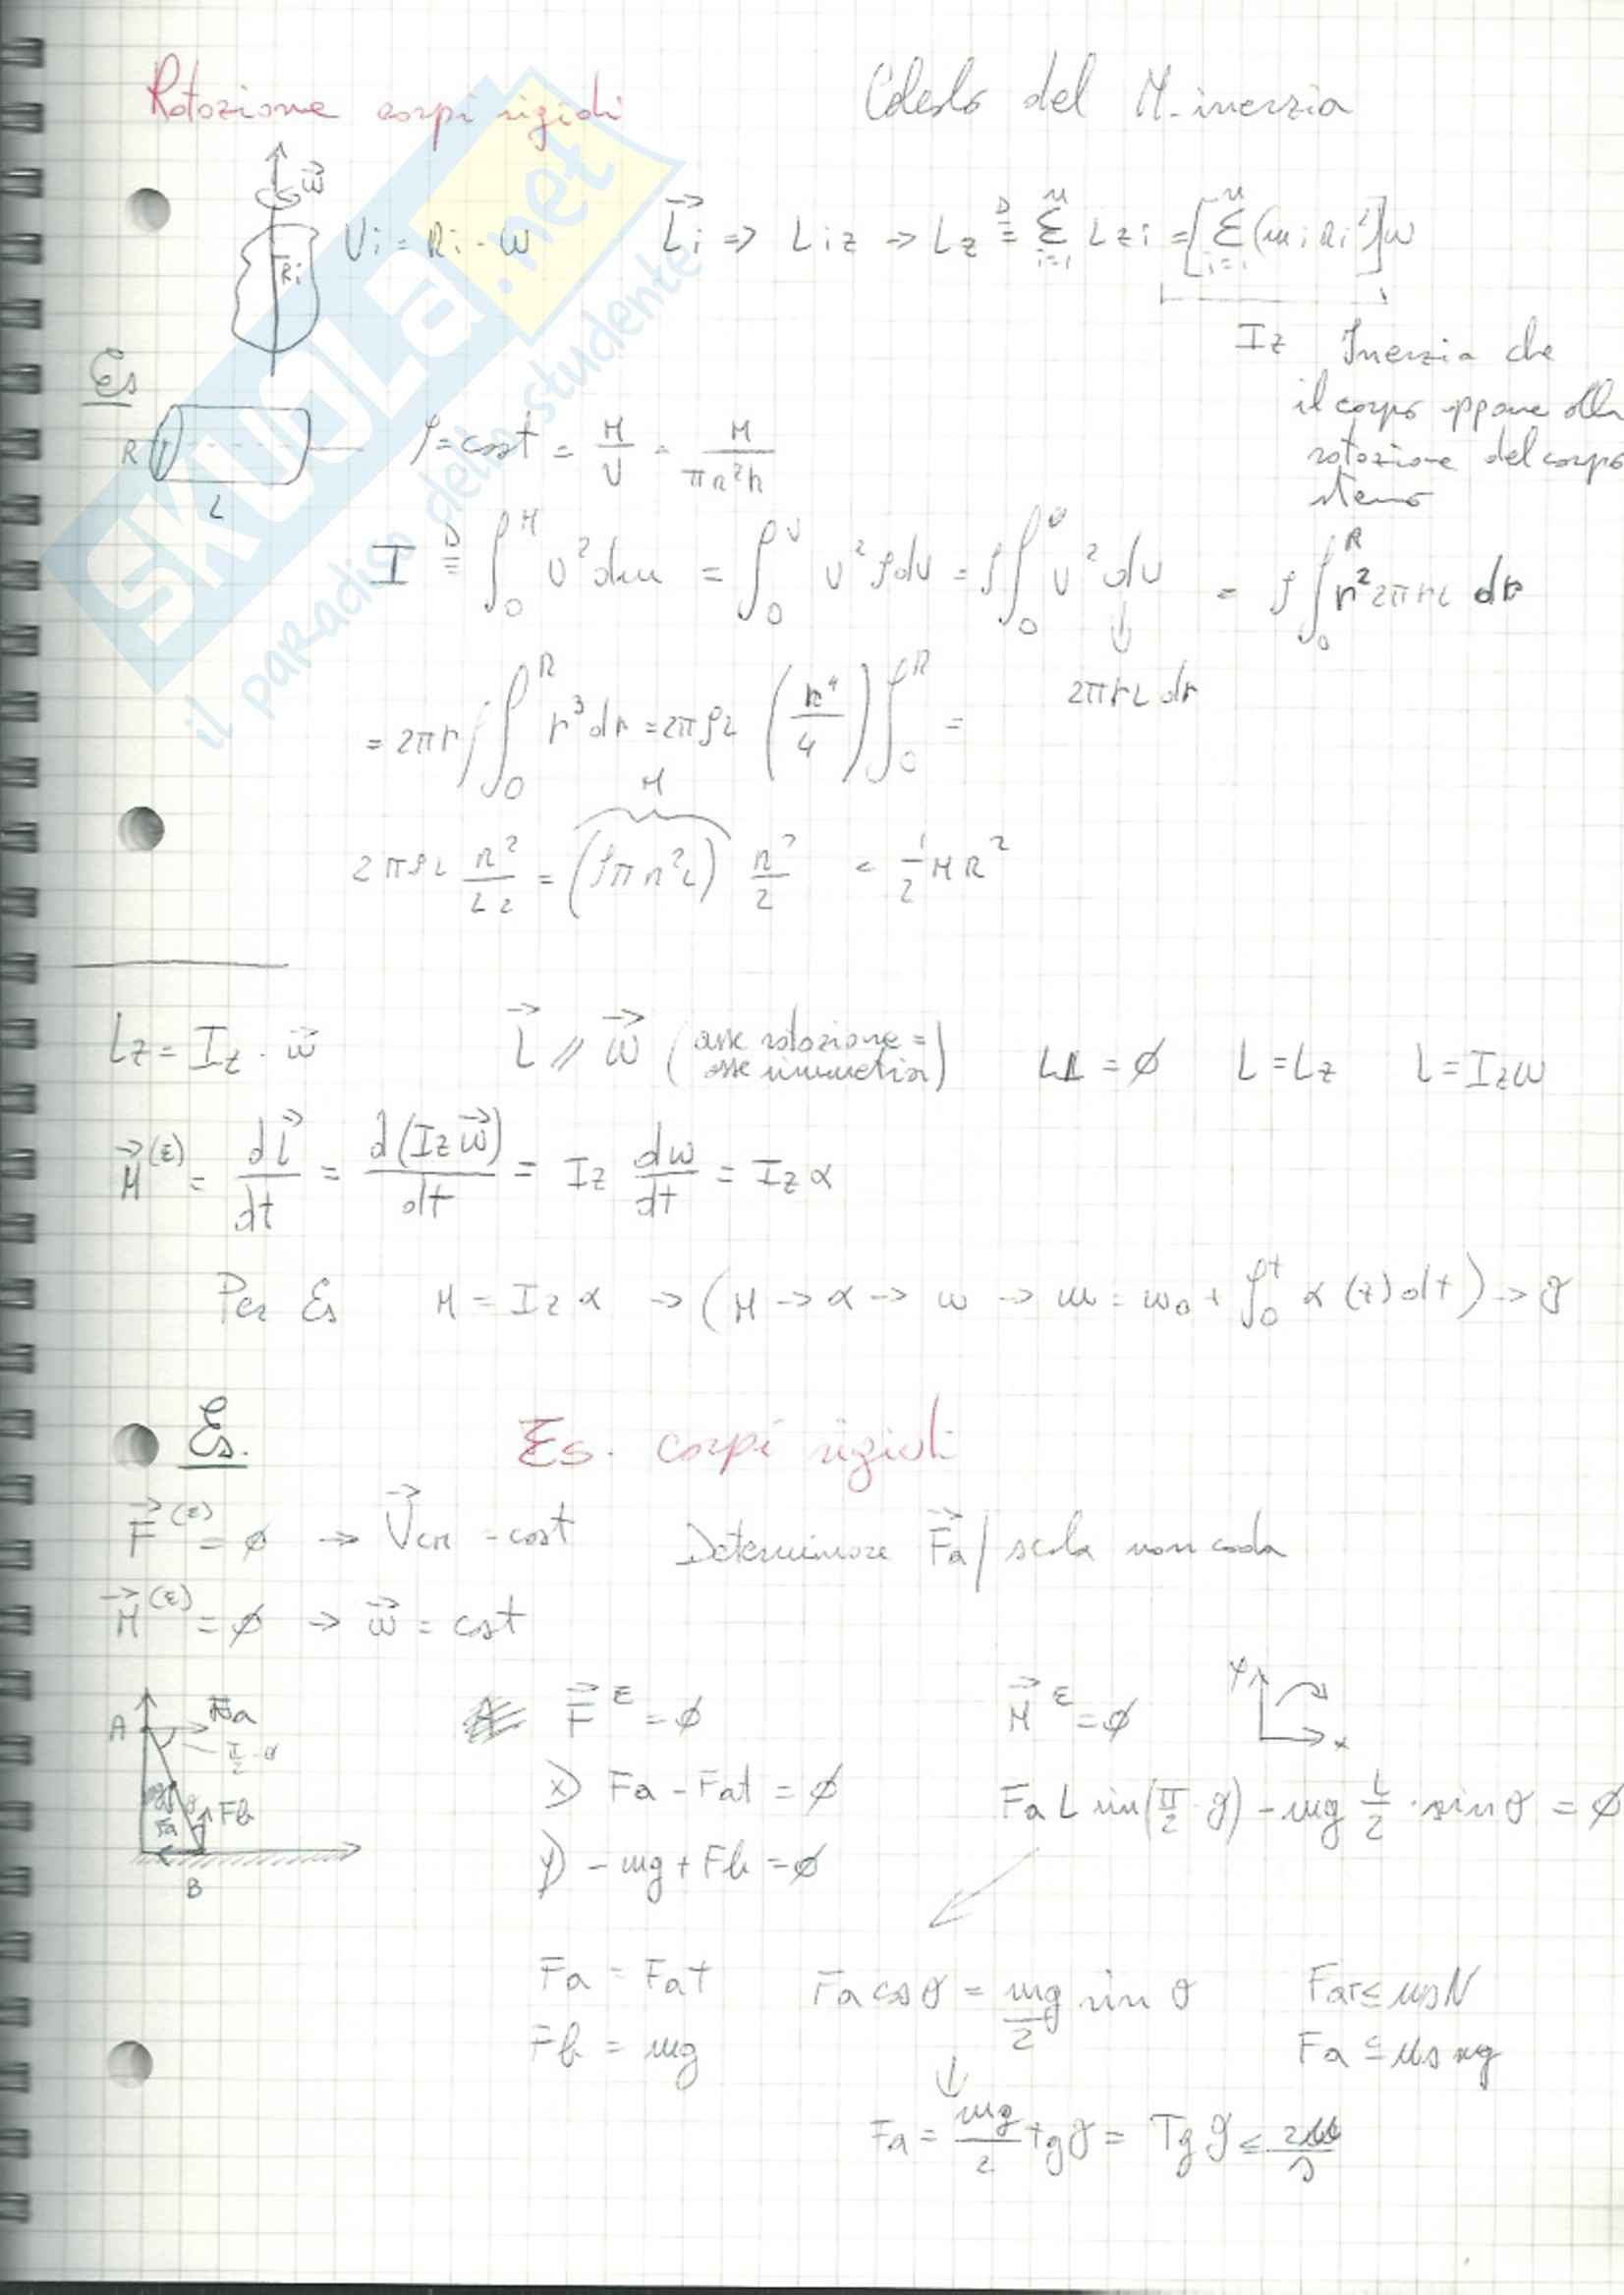 Rotazione corpi rigidi    Calcolo del M. inerzia
ω⃗
Ri
Vi = Ri · ω    L⃗i ⇒ Liz → Lz ≝ Σ(i=1..n) Lzi = [Σ(i=1..n) (mi Ri²)] ω
Iz Inerzia che
il corpo oppone alla
rotazione del corpo
stesso
Es
R
L
ρ = cost = M/V = M/(πR²h)
I ≝ ∫₀ᴹ v² dm = ∫₀ⱽ v² ρ dv = ρ ∫₀ v² dv = ρ ∫₀ᴿ r² 2πrL dr
2πrL dr
= 2πrρ ∫₀ᴿ r³ dr = 2πρL (R⁴/4) ∫₀ᴿ =
M
(ρπR²L) R²/2 = 1/2 MR²
Lz = Iz · ω⃗    L⃗ // ω⃗ (asse rotazione = asse simmetria)    L⊥ = ∅    L = Lz    L = Izω
M⃗⁽ᴱ⁾ = dL⃗/dt = d(Iz ω⃗)/dt = Iz dω/dt = Iz α
Per Es    M = Iz α → (M → α → ω → ω = ω₀ + ∫₀ᵗ α(t) dt) → ϑ
Es.    Es. corpi rigidi
F⃗⁽ᴱ⁾ = ∅ → V⃗cm = cost    Determinare F⃗a / scala non cada
M⃗⁽ᴱ⁾ = ∅ → ω⃗ = cost
A
Fa
π/2 - ϑ
mg
Fb
B
F⃗ᴱ = ∅    M⃗ᴱ = ∅
y
x
x) Fa - Fat = ∅    Fa L sin(π/2 - ϑ) - mg L/2 · sin ϑ = ∅
y) - mg + Fb = ∅
Fa = Fat    Fa cos ϑ = mg/2 sin ϑ    Fat ≤ μsN
Fb = mg    Fa ≤ μs mg
Fa = mg/2 tg ϑ = Tg ϑ ≤
SKUOLa.net
il paradiso dello studente